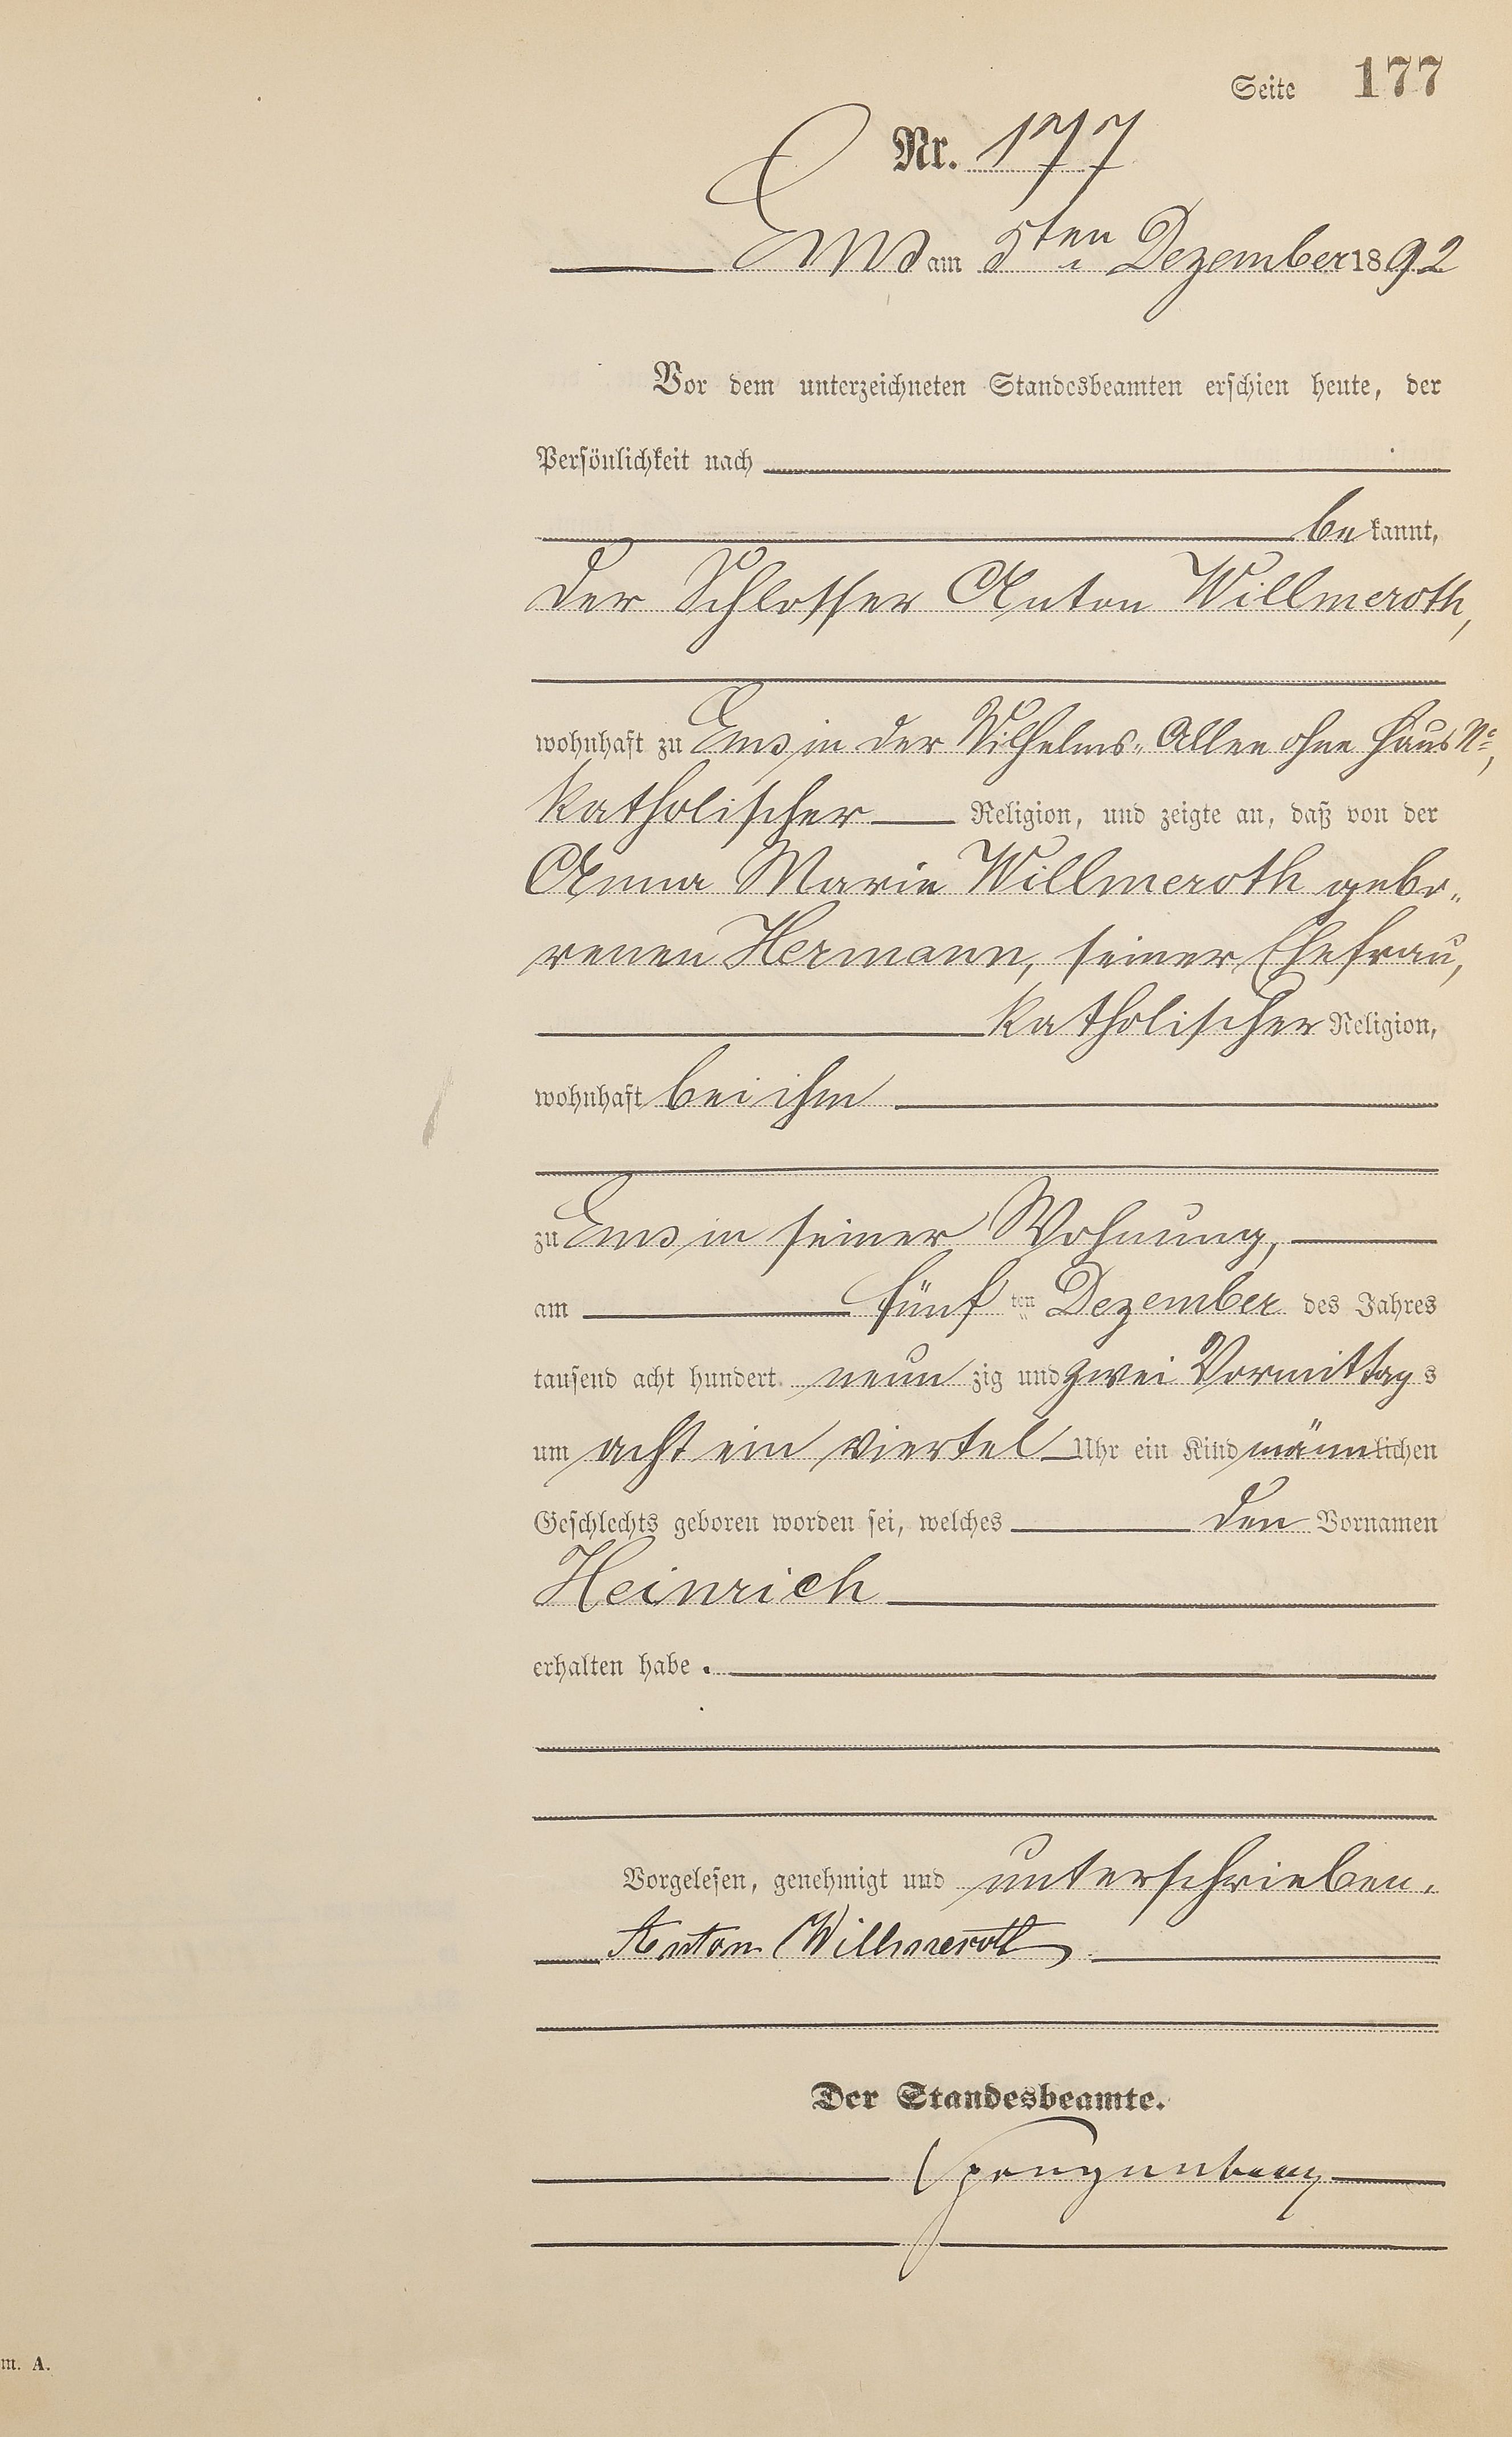 Seite 177
Nr. 177
Ems am 5ten Dezember 1892
Vor dem unterzeichneten Standesbeamten erschien heute, der
Persönlichkeit nach
bekannt,
der Schlosser Anton Willmeroth,
wohnhaft zu Ems in der Wilhelms-Allee ohne Haus No,
katholischer Religion, und zeigte an, daß von der
Anna Marie Willmeroth gebo-
renen Hermann, seiner Ehefrau,
katholischer Religion,
wohnhaft bei ihm
zu Ems in seiner Wohnung,
am fünften Dezember des Jahres
tausend acht hundert neunzig und zwei Vormittags
um acht ein viertel Uhr ein Kind männlichen
Geschlechts geboren worden sei, welches den Vornamen
Heinrich
erhalten habe.
Vorgelesen, genehmigt und unterschrieben.
Anton Willmeroth
Der Standesbeamte.
m. A.